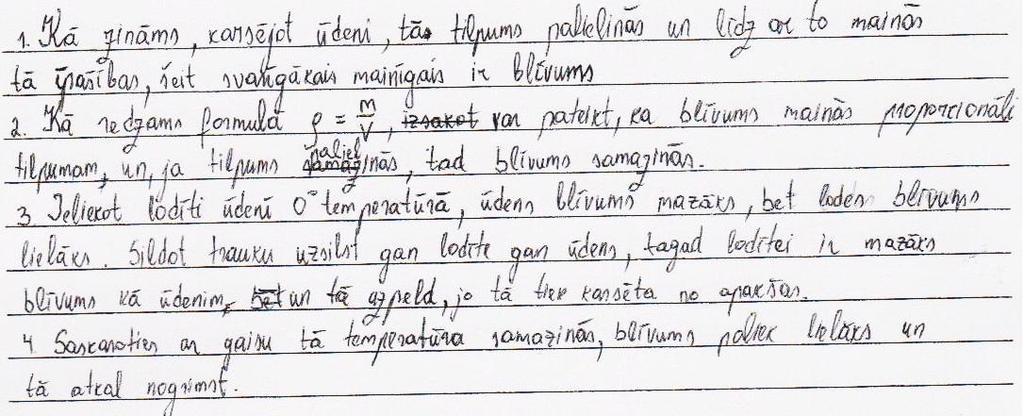 1. Kā zināms, karsējot ūdeni, tā tilpums palielinās un līdz ar to mainās
tā īpašības, šeit svarīgākais mainīgais ir blīvums
2. Kā redzams formulā ρ = m/V, izsakot var pateikt, ka blīvums mainās proporcionāli
tilpumam, un, ja tilpums paliel samazinās, tad blīvums samazinās.
3. Ieliekot lodīti ūdenī 0° temperatūrā, ūdens blīvums mazāks, bet lodes blīvums
lielāks. Sildot trauku uzsilst gan lodīte gan ūdens, tagad lodītei ir mazāks
blīvums kā ūdenim, bet un tā uzpeld, jo tā tiek karsēta no apakšas.
4. Saskaroties ar gaisu tā temperatūra samazinās, blīvums paliek lielāks un
tā atkal nogrimst.